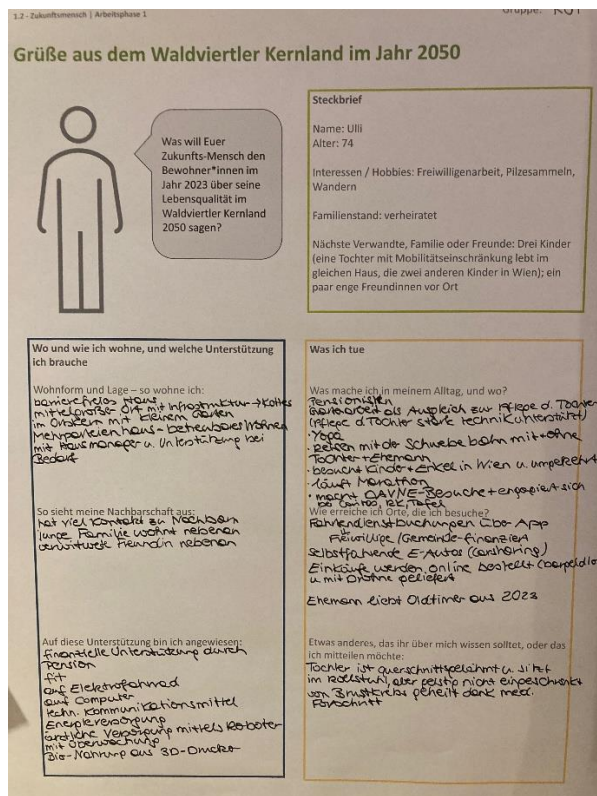 1.2 - Zukunftsmensch | Arbeitsphase 1
Gruppe: ROT
Grüße aus dem Waldviertler Kernland im Jahr 2050
Was will Euer
Zukunfts-Mensch den
Bewohner*innen im
Jahr 2023 über seine
Lebensqualität im
Waldviertler Kernland
2050 sagen?
Steckbrief
Name: Ulli
Alter: 74
Interessen / Hobbies: Freiwilligenarbeit, Pilzesammeln,
Wandern
Familienstand: verheiratet
Nächste Verwandte, Familie oder Freunde: Drei Kinder
(eine Tochter mit Mobilitätseinschränkung lebt im
gleichen Haus, die zwei anderen Kinder in Wien); ein
paar enge Freundinnen vor Ort
Wo und wie ich wohne, und welche Unterstützung
ich brauche
Wohnform und Lage – so wohne ich:
barrierefreies Haus
mittelgroßer Ort mit Infrastruktur → Kottes
im Ortskern mit kleinem Garten
Mehrparteienhaus - betreubares Wohnen
mit Hausmanager u. Unterstützung bei
Bedarf
So sieht meine Nachbarschaft aus:
hat viel Kontakt zu Nachbarn
junge Familie wohnt nebenan
verwitwete Freundin nebenan
Auf diese Unterstützung bin ich angewiesen:
finanzielle Unterstützung durch
Pension
fit
auf Elektrofahrrad
auf Computer
techn. Kommunikationsmittel
Energieversorgung
ärztliche Versorgung mittels Roboter
mit Überwachung
Bio-Nahrung aus 3D-Drucker
Was ich tue
Was mache ich in meinem Alltag, und wo?
Pensionistin
Gartenarbeit als Ausgleich zur Pflege d. Tochter
(Pflege d. Tochter stark technikunterstützt)
· Yoga
· Reisen mit der Schwebebahn mit + ohne
Tochter + Ehemann
· besucht Kinder + Enkel in Wien u. umgekehrt
· läuft Marathon
· macht GAVNE-Besuche + engagiert sich
bei Caritas, RK, Tafel
Wie erreiche ich Orte, die ich besuche?
Fahrtendienstbuchungen über App
Freiwillige / Gemeinde-finanziert
selbstfahrende E-Autos (Carsharing)
Einkäufe werden online bestellt
u. mit Drohne geliefert
Ehemann liebt Oldtimer aus 2023
Etwas anderes, das ihr über mich wissen solltet, oder das
ich mitteilen möchte:
Tochter ist querschnittgelähmt u. sitzt
im Rollstuhl, aber geistig nicht eingeschränkt
von Brustkrebs geheilt dank med.
Fortschritt